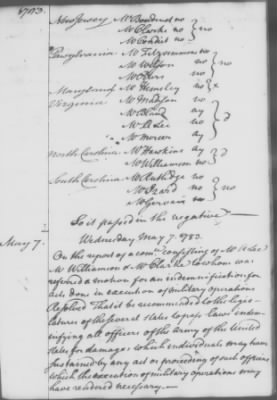 1783.
New Jersey Mr Boudinot no
Mr Clarke no } no
Mr Condit no
Pennsylvania Mr Fitzsimmons no
Mr Wilson no } no
Mr Peters no
Maryland Mr Hemsley no } x
Virginia Mr Madison no
Mr Bland ay } d
Mr A Lee no
Mr Mercer ay
North Carolina Mr Hawkins ay } d
Mr Williamson no
South Carolina Mr Rutledge no
Mr Izard no } no
Mr Gervais no
So it passed in the negative
May 7. Wednesday May 7. 1783.
On the report of a comee consisting of Mr A Lee
Mr Williamson & Mr Clarke to whom was
referred a motion for an indemnification for
acts done in execution of military operations
Resolved That it be recommended to the legis-
latures of the several states to pass laws indem-
nifying all officers of the army of the United
States for damages which individuals may have
sustained by any act or proceeding of such officers
which the execution of military operations may
have rendered necessary.